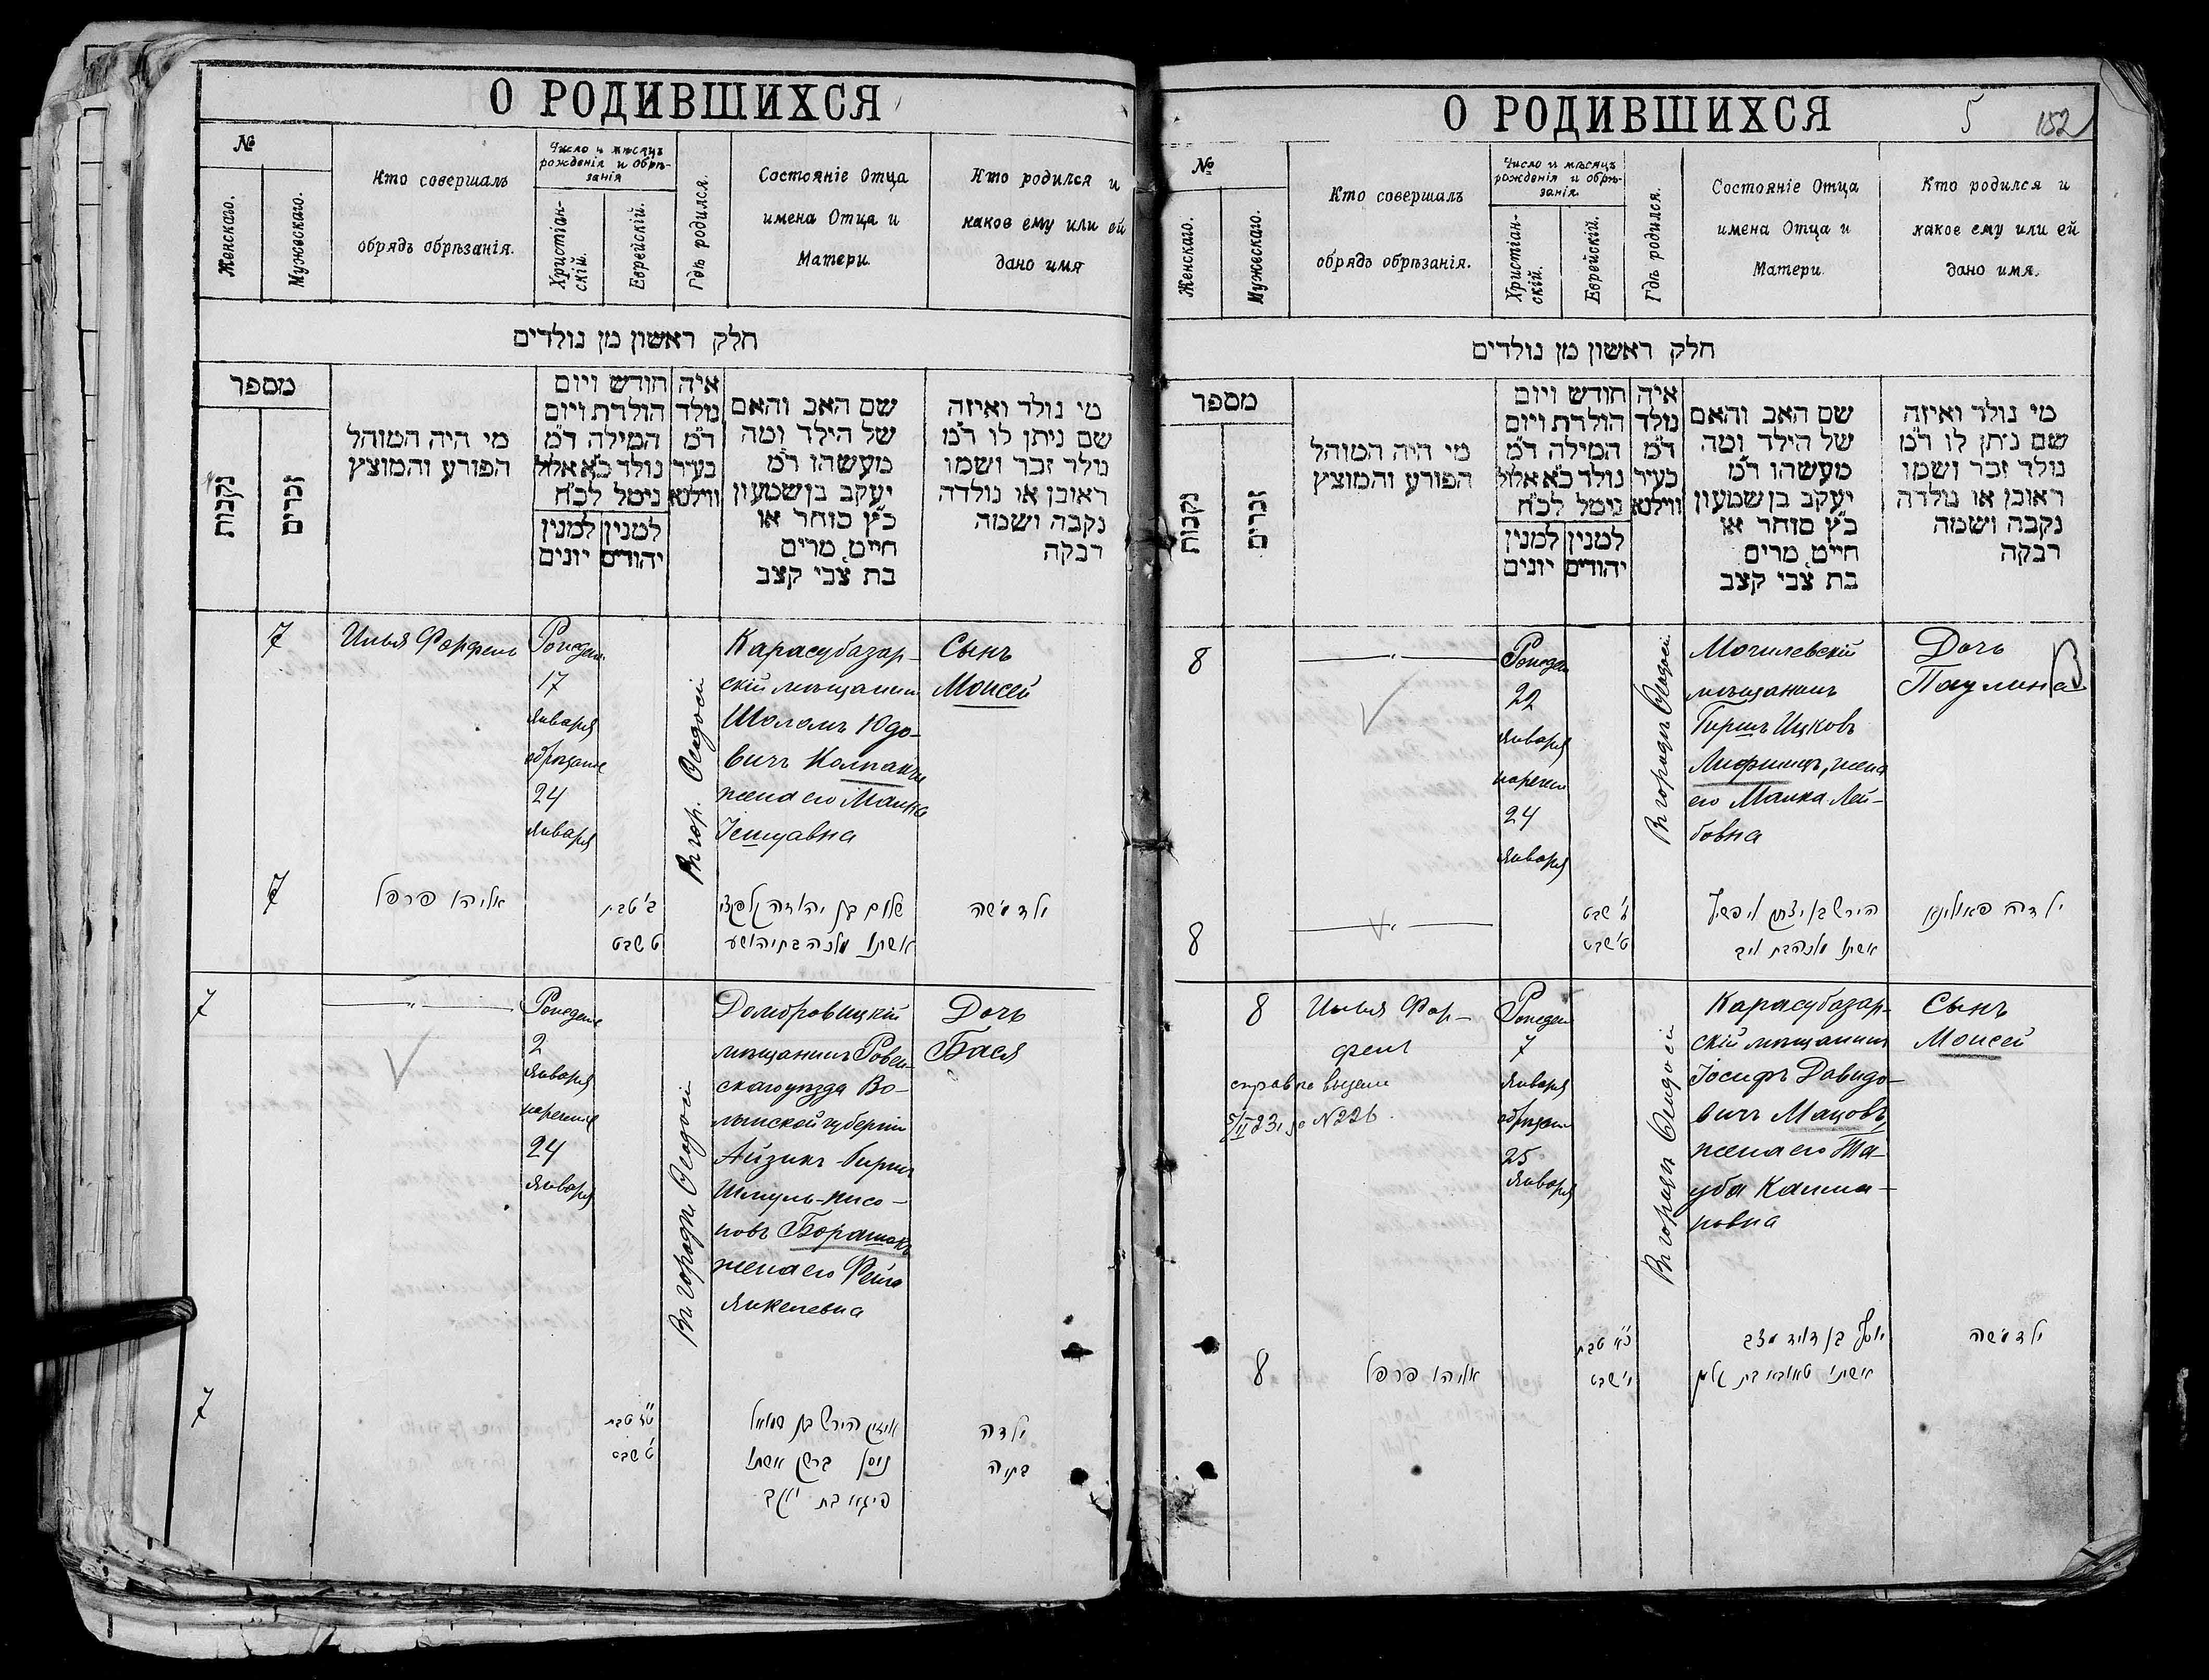 О РОДИВШИХСЯ
№
Женскаго.
Мужескаго.
Кто совершалъ
обрядъ обрѣзанія.
Число и мѣсяцъ
рожденія и обрѣ-
занія
Христіан-
скій.
Еврейскій.
Гдѣ родился.
Состояніе Отца
имена Отца и
Матери.
Кто родился и
какое ему или ей
дано имя
חלק ראשון מן נולדים
מספר
נקבות
זכרים
מי היה המוהל
הפורע והמוצץ
חודש ויום
הולדת ויום
המילה ד״מ
נולד כ״א אלול
נימל לכ״ח
למנין יהודים
למנין יונים
איה
נולד
ד״מ
בעיר
ווילנא
שם האב והאם
של הילד ומה
מעשהו ד״מ
יעקב בן שמעון
כ״ץ סוחר או
חייט, מרים
בת צבי קצב
מי נולד ואיזה
שם ניתן לו ד״מ
נולד זכר ושמו
ראובן או נולדה
נקבה ושמה
רבקה
7
Илья Фарфель
Рожденіе
17
Января
обрѣзаніе
24
Января
Въ гор. Ѳеодосіи
Карасубазар-
скій мѣщанинъ
Шоломъ Юдо-
вичъ Колпакчи
жена его Малка
Іешуавна
Сынъ
Моисей
7
אליהו פרפל
טבת
ט שבט
שלום בן יהודה קלפקצי
אשתו מלכה בת יהושע
ילד משה
7
Рожденіе
2
Января
нареченіе
24
Января
Въ городѣ Ѳеодосіи
Домбровицкій
мѣщанинъ Ровен-
скаго уѣзда Во-
лынской губерніи
Айзикъ-Гиршъ
Шмуль-Нисо-
новъ Борашокъ
жена его Фейга
Янкелевна
Дочь
Бася
7
טבת
ט׳ שבט
אייזיק הירש בן שמואל
ניסן ברשק אשתו
פיגא בת יעקב
ילדה
בתיה
О РОДИВШИХСЯ
5
152
№
Женскаго.
Мужескаго.
Кто совершалъ
обрядъ обрѣзанія.
Число и мѣсяцъ
рожденія и обрѣ-
занія
Христіан-
скій.
Еврейскій.
Гдѣ родился.
Состояніе Отца
имена Отца и
Матери.
Кто родился и
какое ему или ей
дано имя.
חלק ראשון מן נולדים
מספר
נקבות
זכרים
מי היה המוהל
הפורע והמוצץ
חודש ויום
הולדת ויום
המילה ד״מ
נולד כ״א אלול
נימל לכ״ח
למנין יהודים
למנין יונים
איה
נולד
ד״מ
בעיר
ווילנא
שם האב והאם
של הילד ומה
מעשהו ד״מ
יעקב בן שמעון
כ״ץ סוחר או
חייט, מרים
בת צבי קצב
מי נולד ואיזה
שם ניתן לו ד״מ
נולד זכר ושמו
ראובן או נולדה
נקבה ושמה
רבקה
8
Рожден
22
Января
наречен
24
Января
Въ городѣ Ѳеодосіи
Могилевскій
мѣщанинъ
Гиршъ Ицковъ
Лифшицъ, жена
его Малка Лей-
бовна
Дочь
Паулина
8
שבט
ט׳ שבט
הירש בן יצחק ליפשיץ
אשתו מלכה בת ליב
ילדה פאולינא
8
Илья Фар-
фель
справка выдана
5/II 23 № 226.
Рожден
7
Января
обрѣзан
25
Января
Въ городѣ Ѳеодосіи
Карасубазар-
скій мѣщанинъ
Іосифъ Давидо-
вичъ Мацовъ,
жена его Та-
уба Калма-
новна
Сынъ
Моисей
8
אליהו פרפל
טבת
י׳ שבט
יוסף בן דוד מצב
אשתו טאובא בת קלמן
ילד משה